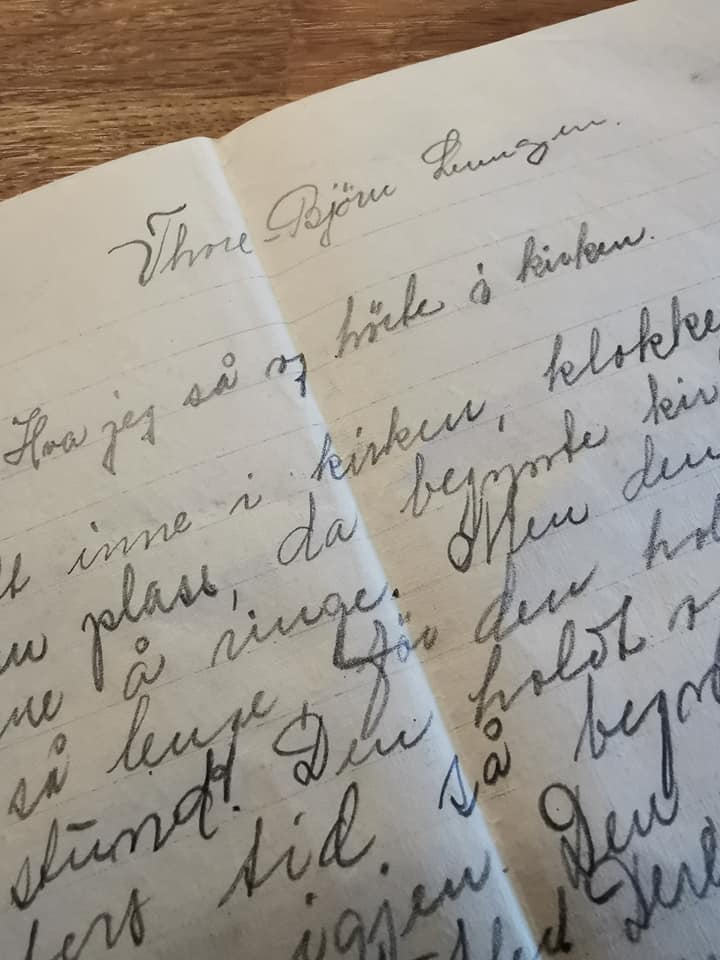 Thore-Björn
Hva jeg så og hörte i kirken.
inne i kirken, klokke
plass, da begynte kir
å ringe. Men den
så lenge, för den hol
stund. Den holdt
tid så begyn
igjen. Den